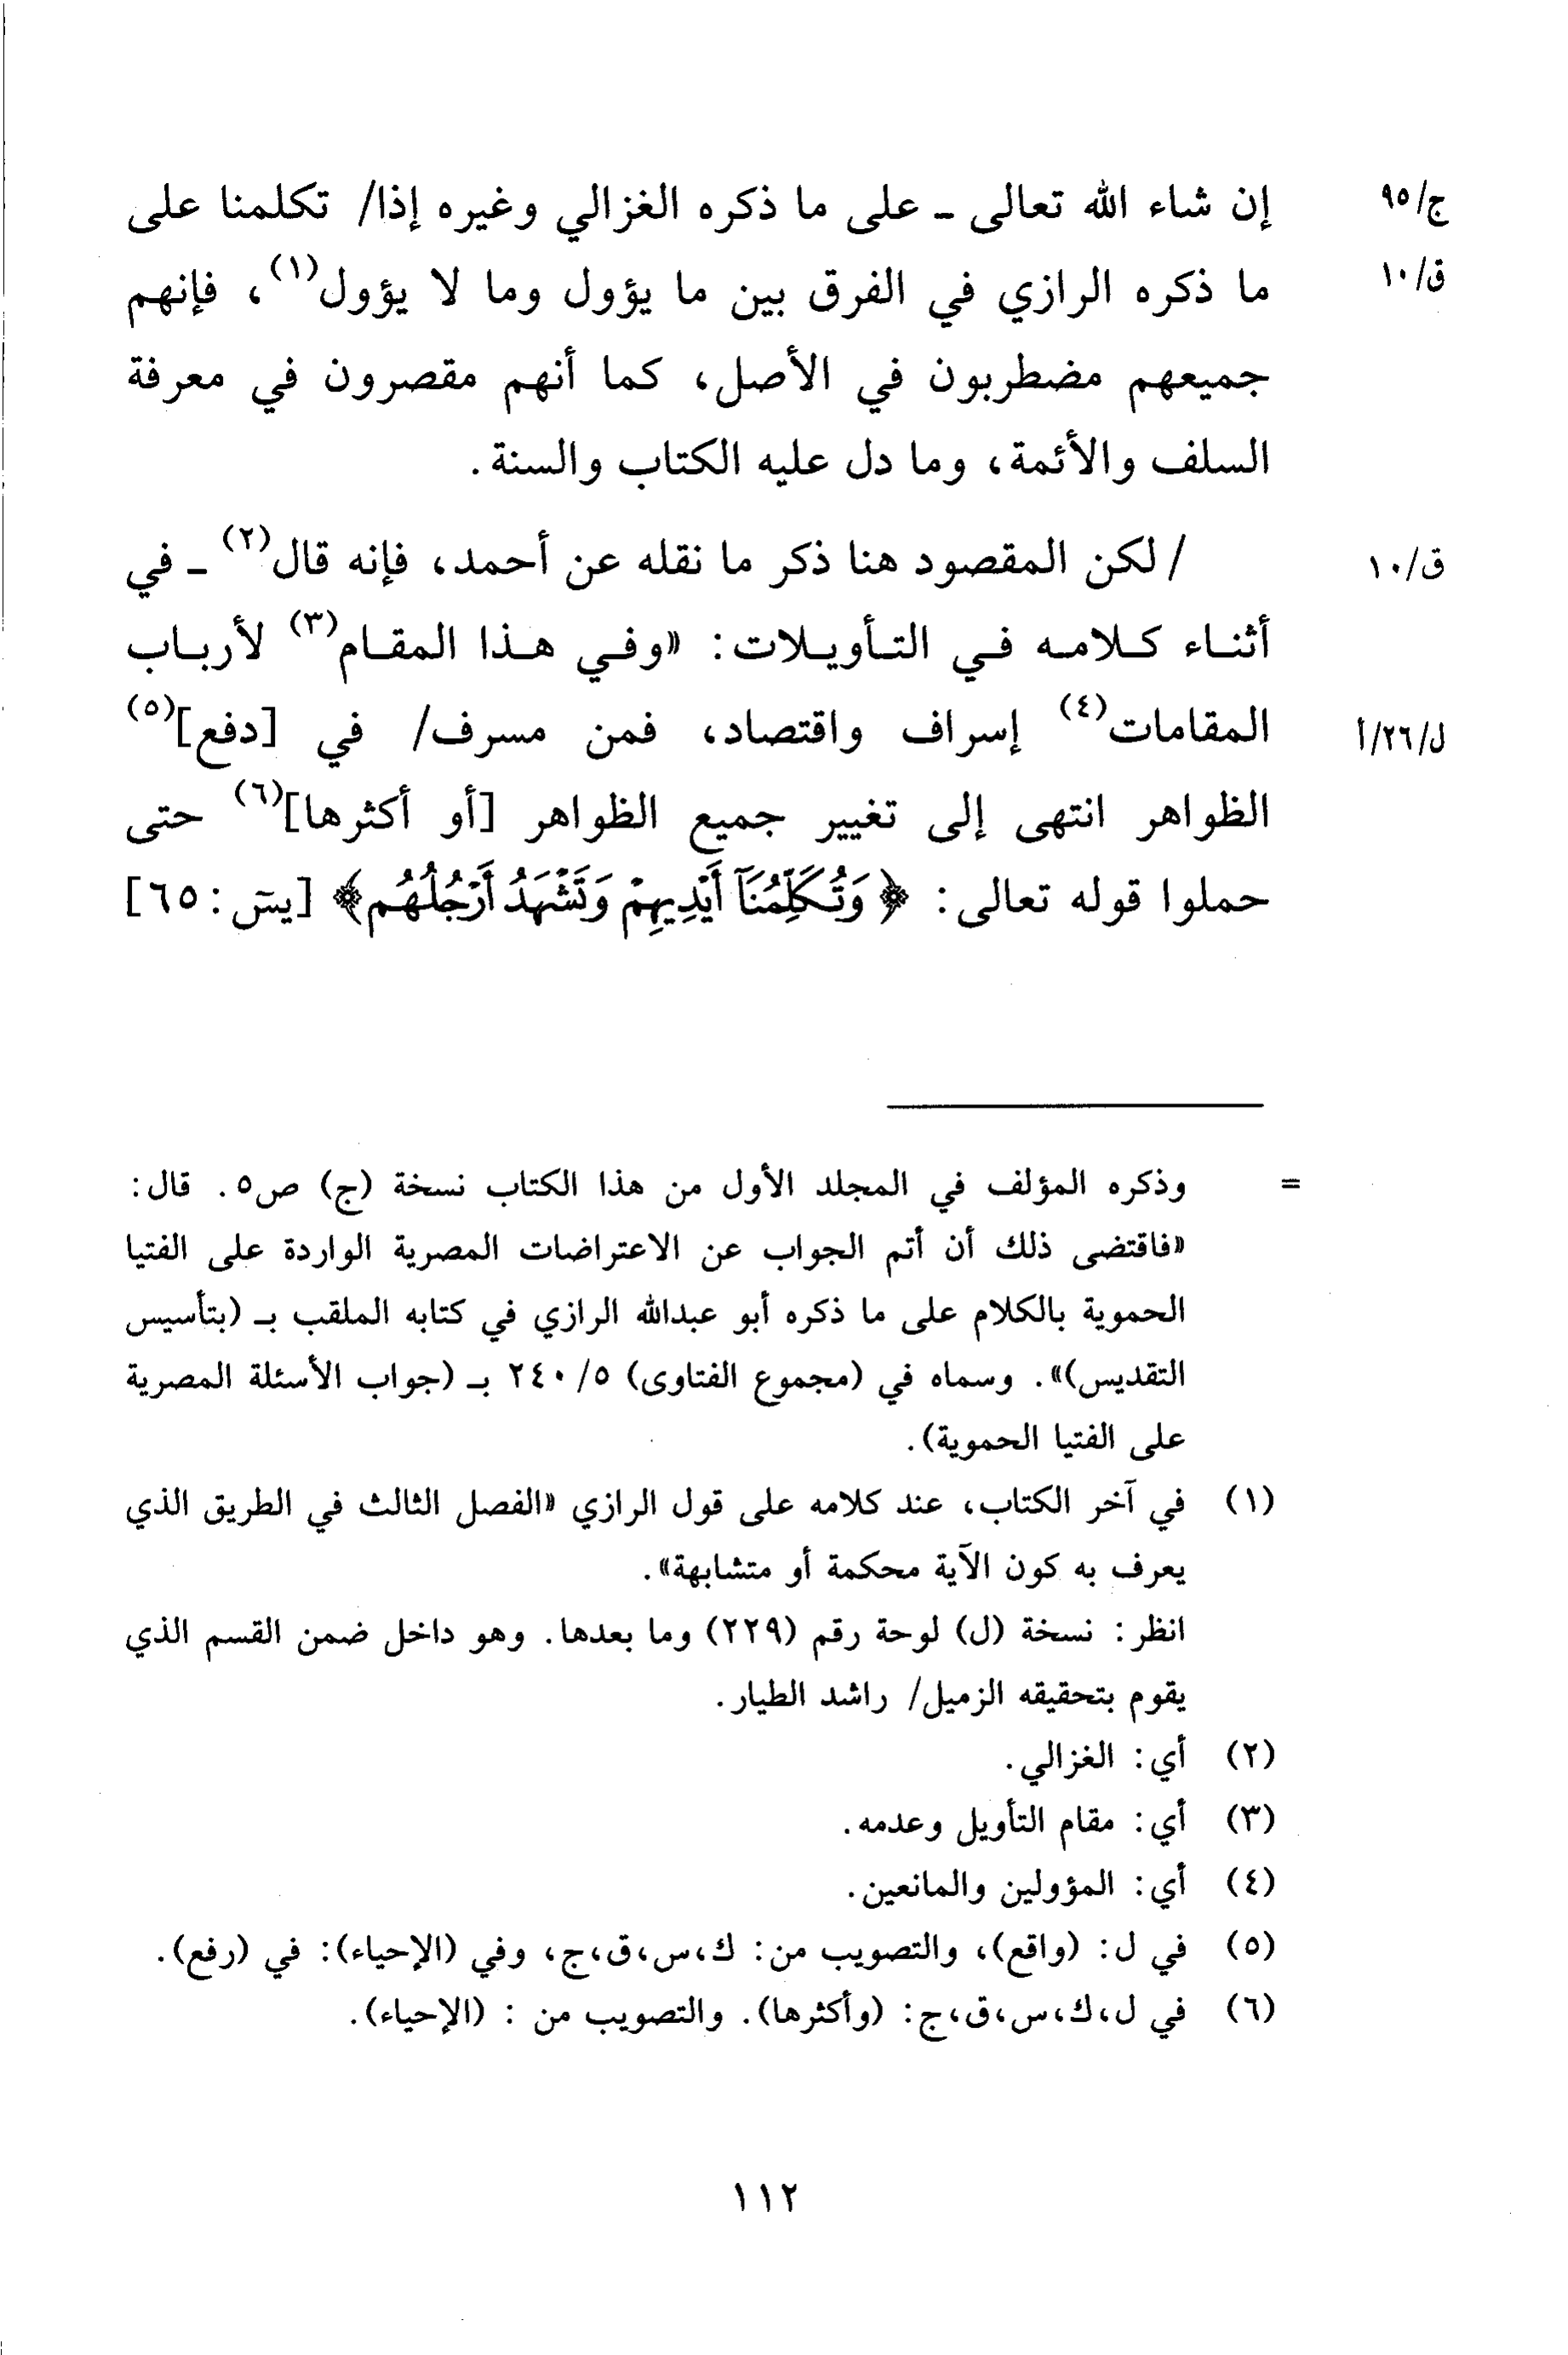 إن شاء الله تعالى - على ما ذكره الغزالي وغيره إذا/ تكلمنا على ج/٩٥
ما ذكره الرازي في الفرق بين ما يؤول وما لا يؤول(١)، فإنهم ق/١٠
جميعهم مضطربون في الأصل، كما أنهم مقصرون في معرفة
السلف والأئمة، وما دل عليه الكتاب والسنة.
/ لكن المقصود هنا ذكر ما نقله عن أحمد، فإنه قال(٢) - في ق/١٠
أثناء كلامه في التأويلات: «وفي هذا المقام(٣) لأرباب
المقامات(٤) إسراف واقتصاد، فمن مسرف/ في [دفع](٥) ل/٢٦/أ
الظواهر انتهى إلى تغيير جميع الظواهر [أو أكثرها](٦) حتى
حملوا قوله تعالى: ﴿وَتُكَلِّمُنَآ أَيْدِيهِمْ وَتَشْهَدُ أَرْجُلُهُم﴾ [يسٓ: ٦٥]
= وذكره المؤلف في المجلد الأول من هذا الكتاب نسخة (ج) ص٥. قال:
«فاقتضى ذلك أن أتم الجواب عن الاعتراضات المصرية الواردة على الفتيا
الحموية بالكلام على ما ذكره أبو عبدالله الرازي في كتابه الملقب بـ (بتأسيس
التقديس)». وسماه في (مجموع الفتاوى) ٥/ ٢٤٠ بـ (جواب الأسئلة المصرية
على الفتيا الحموية).
(١) في آخر الكتاب، عند كلامه على قول الرازي «الفصل الثالث في الطريق الذي
يعرف به كون الآية محكمة أو متشابهة».
انظر: نسخة (ل) لوحة رقم (٢٢٩) وما بعدها. وهو داخل ضمن القسم الذي
يقوم بتحقيقه الزميل/ راشد الطيار.
(٢) أي: الغزالي.
(٣) أي: مقام التأويل وعدمه.
(٤) أي: المؤولين والمانعين.
(٥) في ل: (واقع)، والتصويب من: ك،س،ق،ج، وفي (الإحياء): في (رفع).
(٦) في ل،ك،س،ق،ج: (وأكثرها). والتصويب من : (الإحياء).
١١٢